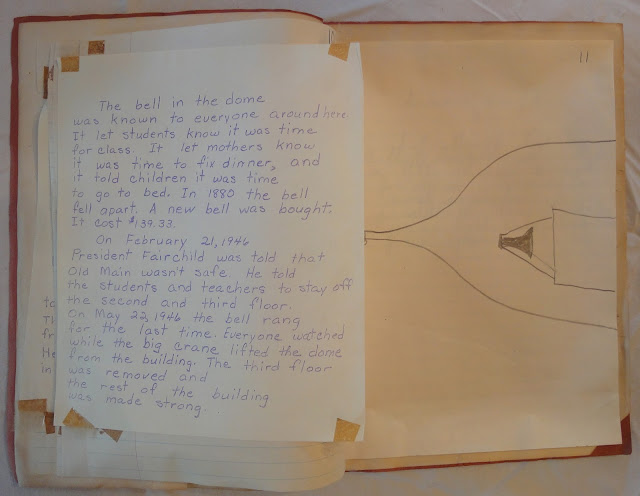 The bell in the dome
was known to everyone around here
It let students know it was time
for class. It let mothers know
it was time to fix dinner, and
it told children it was time
to go to bed. In 1880 the bell
fell apart. A new bell was bought.
It cost $139.33.
On February 21, 1946
President Fairchild was told that
Old Main wasn't safe. He told
the students and teachers to stay off
the second and third floor.
On May 22, 1946 the bell rang
for the last time. Everyone watched
while the big crane lifted the dome
from the building. The third floor
was removed and
the rest of the building
was made strong.
to
Th
fr
He
in
11